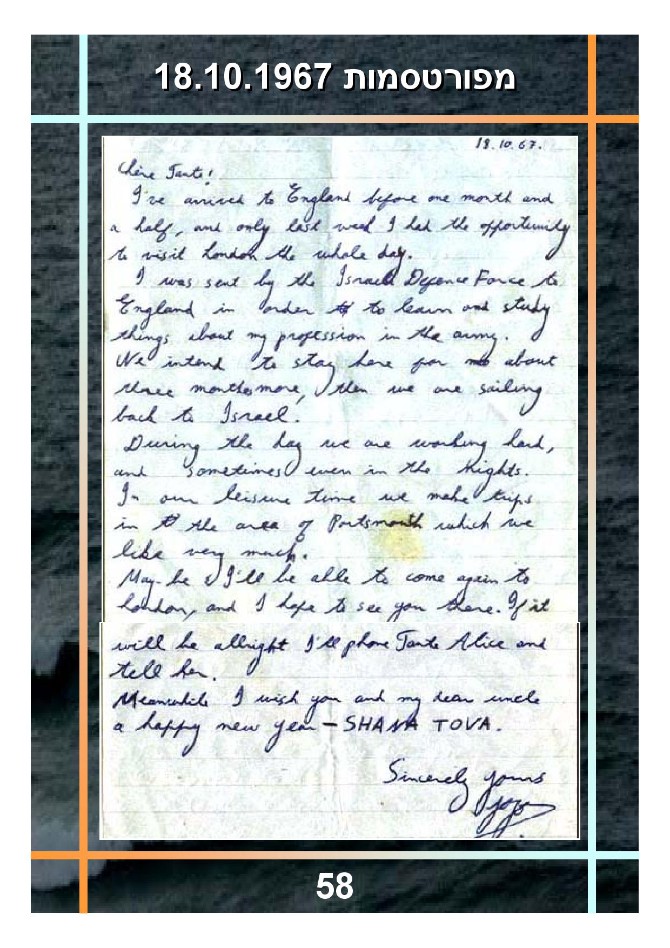 מפורטסמות 18.10.1967
18.10.67.
Chère Tante!
I've arrived to England before one month and
a half, and only last week I had the opportunity
to visit London the whole day.
I was sent by the Israel Defence Force to
England in order to to learn and study
things about my profession in the army.
We intend to stay here for about
three months more, then we are sailing
back to Israel.
During the day we are working hard,
and sometimes even in the nights.
In our leisure time we make trips
in the area of Portsmouth which we
like very much.
May be I'll be able to come again to
London, and I hope to see you there. If it
will be allright I'll phone Tante Alice and
tell her.
Meanwhile I wish you and my dear uncle
a happy new year – SHANA TOVA.
Sincerely yours
58